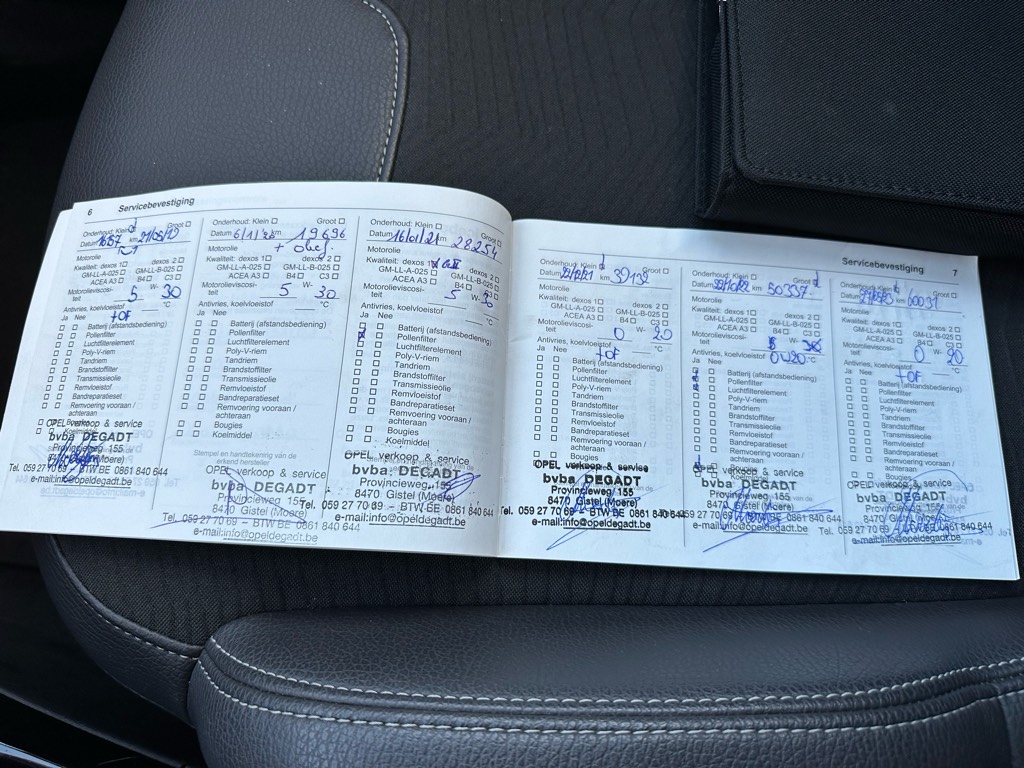 6 Servicebevestiging
Onderhoud: Klein Groot
Datum 1657 km 21/05/19
Motorolie
Kwaliteit: dexos 1 dexos 2
GM-LL-A-025 GM-LL-B-025
ACEA A3 B4 C3
Motorolieviscosi-
teit 5 W- 30
Antivries, koelvloeistof °C
+OF
Ja Nee
Batterij (afstandsbediening)
Pollenfilter
Luchtfilterelement
Poly-V-riem
Tandriem
Brandstoffilter
Transmissieolie
Remvloeistof
Bandreparatieset
Remvoering vooraan /
achteraan
OPEL verkoop & service
bvba DEGADT
Provincieweg 155
Tel. 059 27 70 69 - BTW BE 0861 840 644
e-mail:info@opeldegadt.be
Onderhoud: Klein Groot
Datum 6/11 km 19696
Motorolie
Kwaliteit: dexos 1 dexos 2
GM-LL-A-025 GM-LL-B-025
ACEA A3 B4 C3
Motorolieviscosi-
teit 5 W- 30
Antivries, koelvloeistof °C
Ja Nee
Batterij (afstandsbediening)
Pollenfilter
Luchtfilterelement
Poly-V-riem
Tandriem
Brandstoffilter
Transmissieolie
Remvloeistof
Bandreparatieset
Remvoering vooraan /
achteraan
Bougies
Koelmiddel
Stempel en handtekening van de
erkend hersteller
OPEL verkoop & service
bvba DEGADT
Provincieweg 155
8470 Gistel (Moere)
Tel. 059 27 70 69 - BTW BE 0861 840 644
e-mail:info@opeldegadt.be
Onderhoud: Klein Groot
Datum 16/01/21 km 28254
Motorolie
Kwaliteit: dexos 1 dexos 2
GM-LL-A-025 GM-LL-B-025
ACEA A3 B4 C3
Motorolieviscosi-
teit 5 W- 30
Antivries, koelvloeistof °C
Ja Nee
Batterij (afstandsbediening)
Pollenfilter
Luchtfilterelement
Poly-V-riem
Tandriem
Brandstoffilter
Transmissieolie
Remvloeistof
Bandreparatieset
Remvoering vooraan /
achteraan
Bougies
Koelmiddel
OPEL verkoop & service
bvba DEGADT
Provincieweg 155
8470 Gistel (Moere)
Tel. 059 27 70 69 - BTW BE 0861 840 644
e-mail:info@opeldegadt.be
Servicebevestiging 7
Onderhoud: Klein Groot
Datum km 39139
Motorolie
Kwaliteit: dexos 1 dexos 2
GM-LL-A-025 GM-LL-B-025
ACEA A3 B4 C3
Motorolieviscosi-
teit 0 W- 20
Antivries, koelvloeistof °C
+OF
Ja Nee
Batterij (afstandsbediening)
Pollenfilter
Luchtfilterelement
Poly-V-riem
Tandriem
Brandstoffilter
Transmissieolie
Remvloeistof
Bandreparatieset
Remvoering vooraan /
achteraan
Bougies
Koelmiddel
OPEL verkoop & service
bvba DEGADT
Provincieweg 155
8470 Gistel (Moere)
Tel. 059 27 70 69 - BTW BE 0861 840 644
e-mail:info@opeldegadt.be
Onderhoud: Klein Groot
Datum km 50337
Motorolie
Kwaliteit: dexos 1 dexos 2
GM-LL-A-025 GM-LL-B-025
ACEA A3 B4 C3
Motorolieviscosi-
teit W-
Antivries, koelvloeistof 0W20 °C
Ja Nee
Batterij (afstandsbediening)
Pollenfilter
Luchtfilterelement
Poly-V-riem
Tandriem
Brandstoffilter
Transmissieolie
Remvloeistof
Bandreparatieset
Remvoering vooraan /
achteraan
OPEL verkoop & service
bvba DEGADT
Provincieweg 155
8470 Gistel (Moere)
059 27 70 69 - BTW BE 0861 840 644
e-mail:info@opeldegadt.be
Onderhoud: Klein Groot
Datum km 60031
Motorolie
Kwaliteit: dexos 1 dexos 2
GM-LL-A-025 GM-LL-B-025
ACEA A3 B4 C3
Motorolieviscosi-
teit 0 W- 20
Antivries, koelvloeistof °C
+OF
Ja Nee
Batterij (afstandsbediening)
Pollenfilter
Luchtfilterelement
Poly-V-riem
Tandriem
Brandstoffilter
Transmissieolie
Remvloeistof
Bandreparatieset
Remvoering vooraan /
achteraan
Bougies
OPEL verkoop & service
bvba DEGADT
Provincieweg 155
8470 Gistel (Moere)
Tel. 059 27 70 69 - BTW BE 0861 840 644
e-mail:info@opeldegadt.be